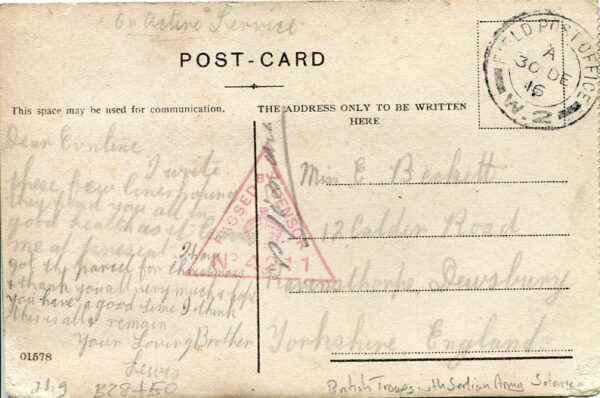 On Active Service
POST-CARD
This space may be used for communication.
THE ADDRESS ONLY TO BE WRITTEN
HERE
FIELD POST OFFICE
A
30 DE
16
W.2
Dear
I write
these few lines hoping
they find you all in
good health as it leaves
me at present I have
got the parcel for
& thank you all very much & hope
you have a good time I think
this is all I remain
Your Loving Brother
Lewis
PASSED BY CENSOR
No 4211
Miss E Beckett
12 Calder Road
Ravensthorpe, Dewsbury
Yorkshire England
01578
B28450
British Troops with Serbian Army Salonica